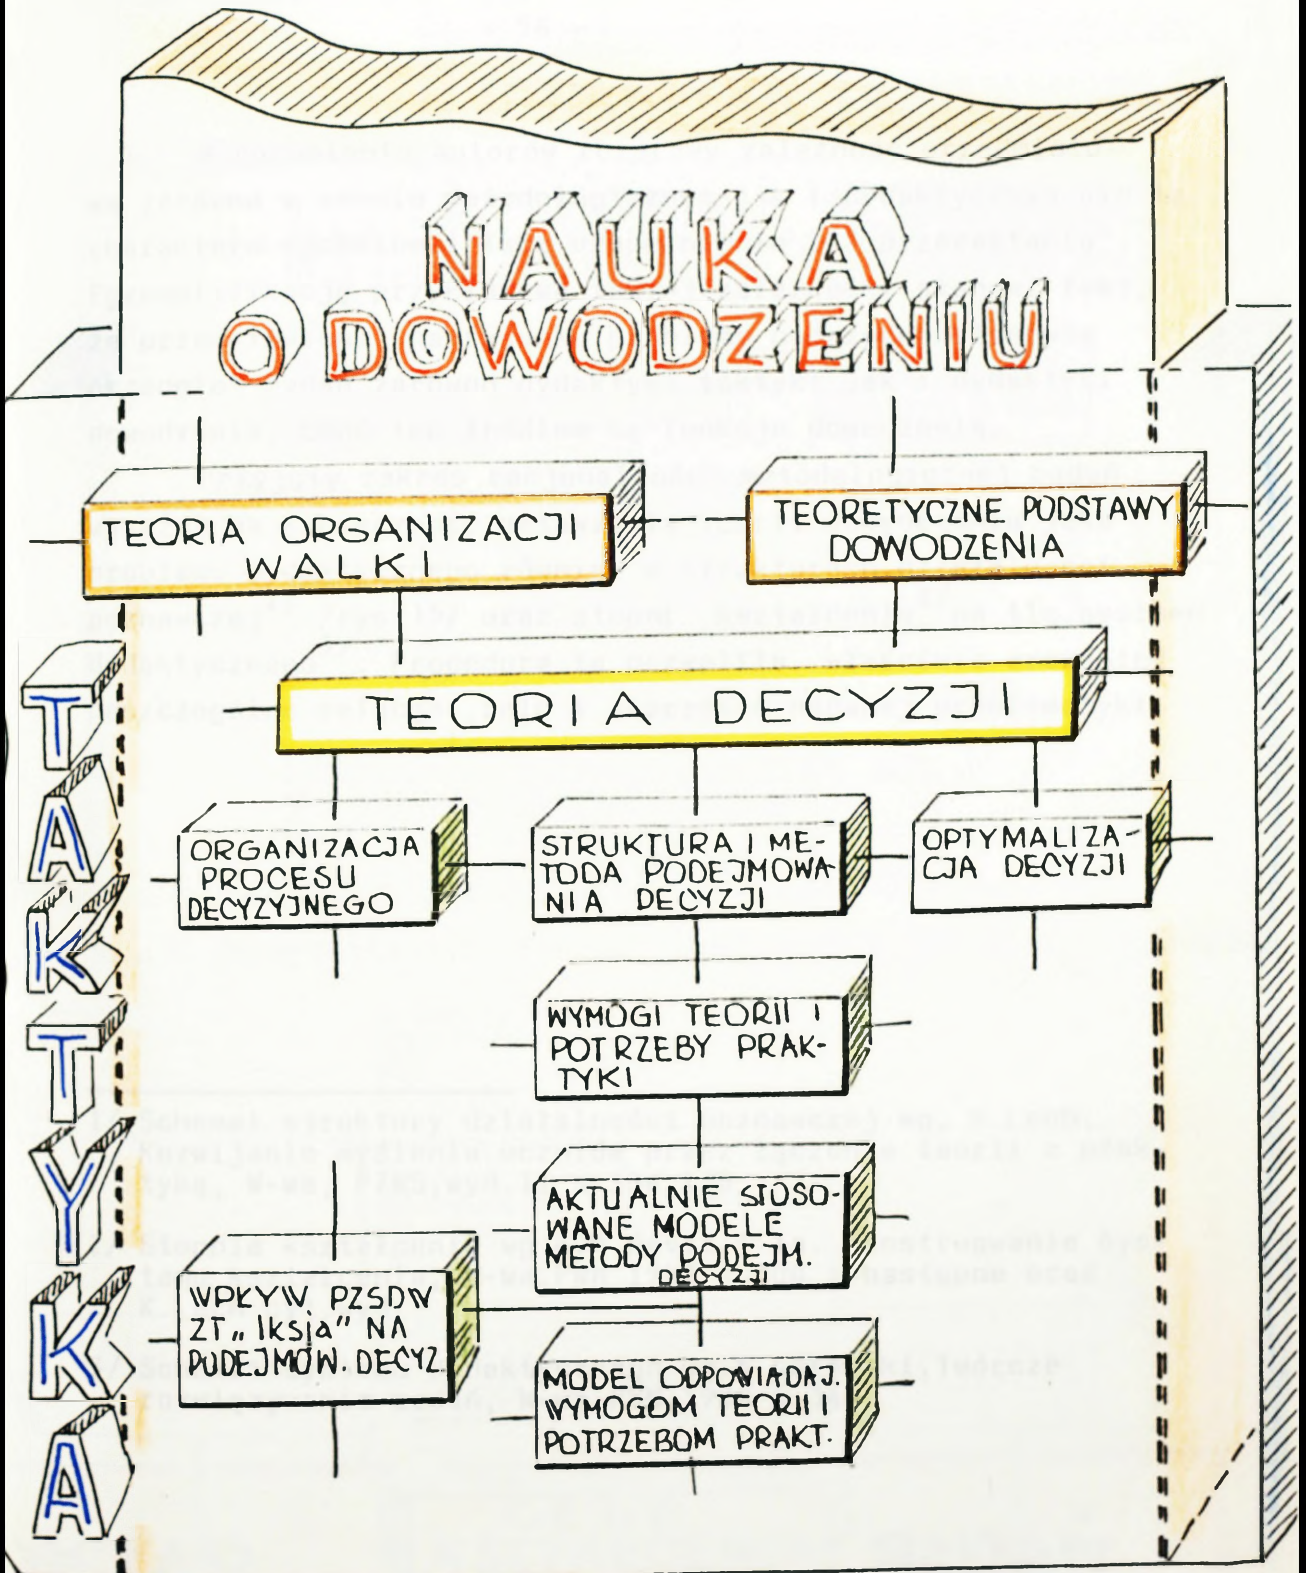 NAUKA
O DOWODZENIU
TEORIA ORGANIZACJI
WALKI
TEORETYCZNE PODSTAWY
DOWODZENIA
TEORIA DECYZJI
TAKTYKA
ORGANIZACJA
PROCESU
DECYZYJNEGO
STRUKTURA I ME-
TODA PODEJMOWA-
NIA DECYZJI
OPTYMALIZA-
CJA DECYZJI
WYMOGI TEORII I
POTRZEBY PRAK-
TYKI
AKTUALNIE STOSO-
WANE MODELE
METODY PODEJM.
DECYZJI
WPŁYW PZSDW
ZT „Iksja" NA
PODEJMOW. DECYZ.
MODEL ODPOWIADAJ.
WYMOGOM TEORII I
POTRZEBOM PRAKT.